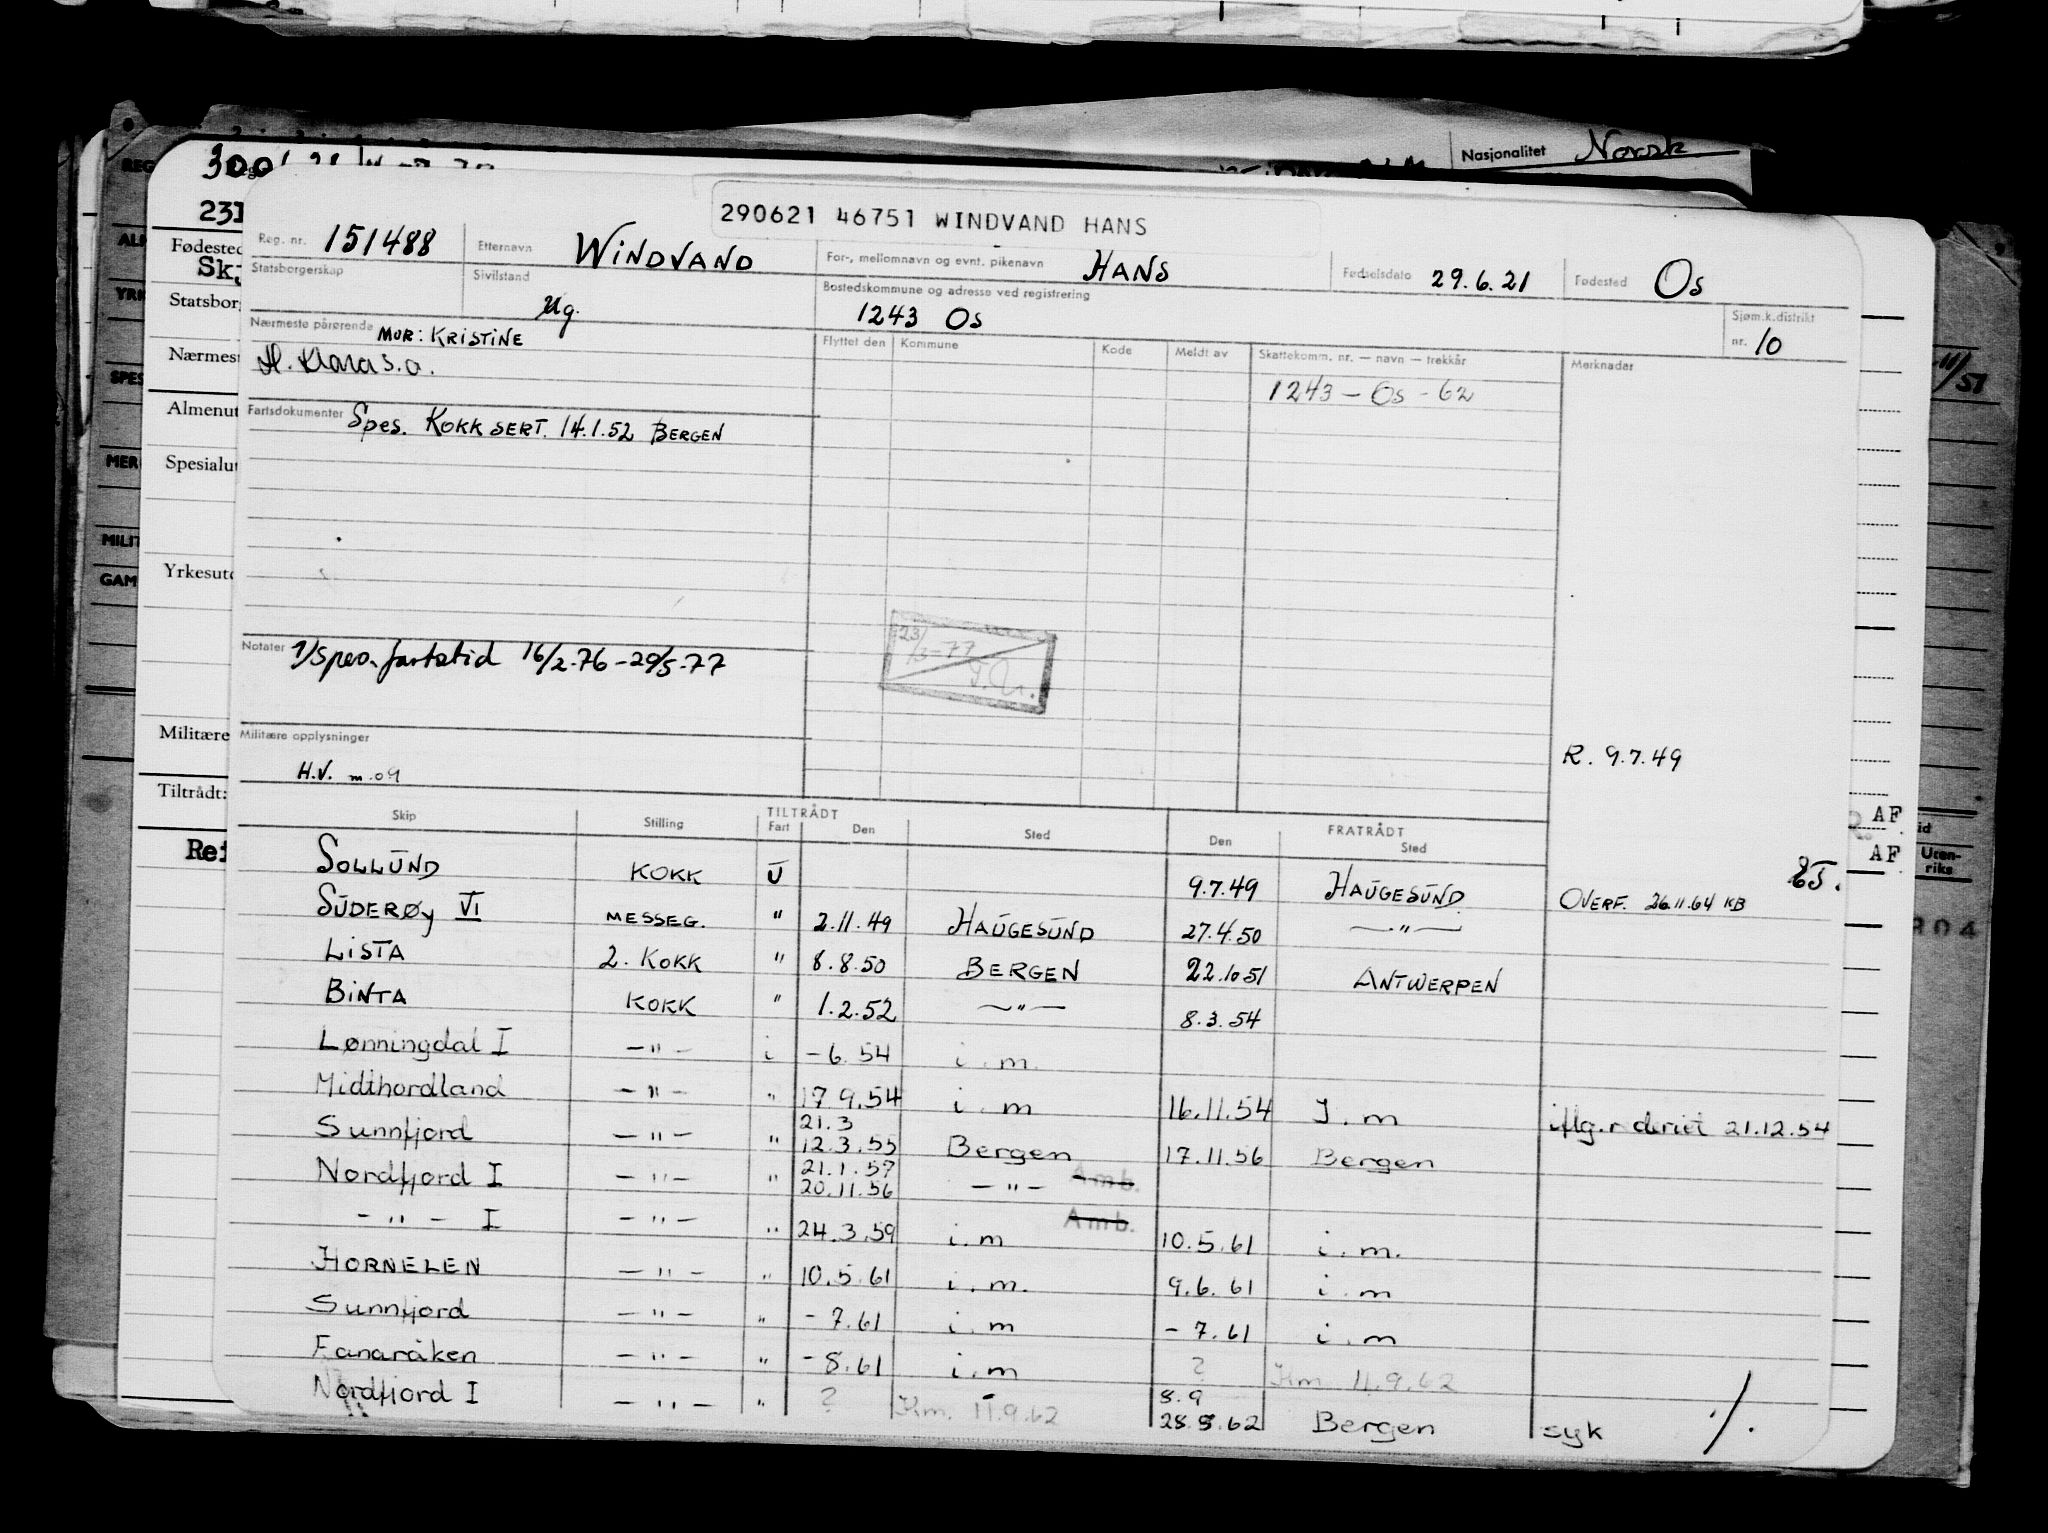 Nasjonalitet Norsk
300
290621 46751 WINDVAND HANS
Reg. nr. 151488 Etternavn WINDVAND For-, mellomnavn og evnt. pikenavn HANS Fødselsdato 29.6.21 Fødested Os
Statsborgerskap Sivilstand Ug. Bostedskommune og adresse ved registrering 1243 Os Sjøm.k.distrikt nr. 10
Nærmeste pårørende MOR: KRISTINE
Flyttet den Kommune Kode Meldt av Skattekomm. nr. — navn — trekkår Merknader
1243 — Os - 62
Fartsdokumenter Spes. KOKKSERT. 14.1.52 BERGEN
Notater 1/spes. fartstid 16/2-76-29/5-77
23/3-77
Militære opplysninger
H.V. m.09
R. 9.7.49
TILTRÅDT FRATRÅDT
Skip Stilling Fart Den Sted Den Sted
SOLLUND KOKK U 9.7.49 HAUGESUND OVERF. 26.11.64 KB
SUDERØY VI MESSEG. " 2.11.49 HAUGESUND 27.4.50 —"—
LISTA 2. KOKK " 8.8.50 BERGEN 22.10.51 ANTWERPEN
BINTA KOKK " 1.2.52 —"— 8.3.54
Lønningdal I -"- i -6.54 i.m.
Midthordland -"- " 17.9.54 i.m 16.11.54 I.m iflg. r deriet 21.12.54
21.3
Sunnfjord -"- " 12.3.55 Bergen 17.11.56 Bergen
21.1.57
Nordfjord I -"- " 20.11.56 -"- Amb.
-"- I -"- " 24.3.59 i.m Amb. 10.5.61 i.m.
HORNELEN -"- " 10.5.61 i.m. 9.6.61 i.m
Sunnfjord -"- " -7.61 i.m -7.61 i.m
Fanaråken -"- " -8.61 i.m ? Km. 4.9.62
8.9
Nordfjord I -"- " ? Km. 11.9.62 28.8.62 Bergen syk ./.
Fødested
Statsbor
Nærmest
Almenut
Spesialut
Yrkesutd
Militære
Tiltrådt:
AF
AF
Uten-
riks